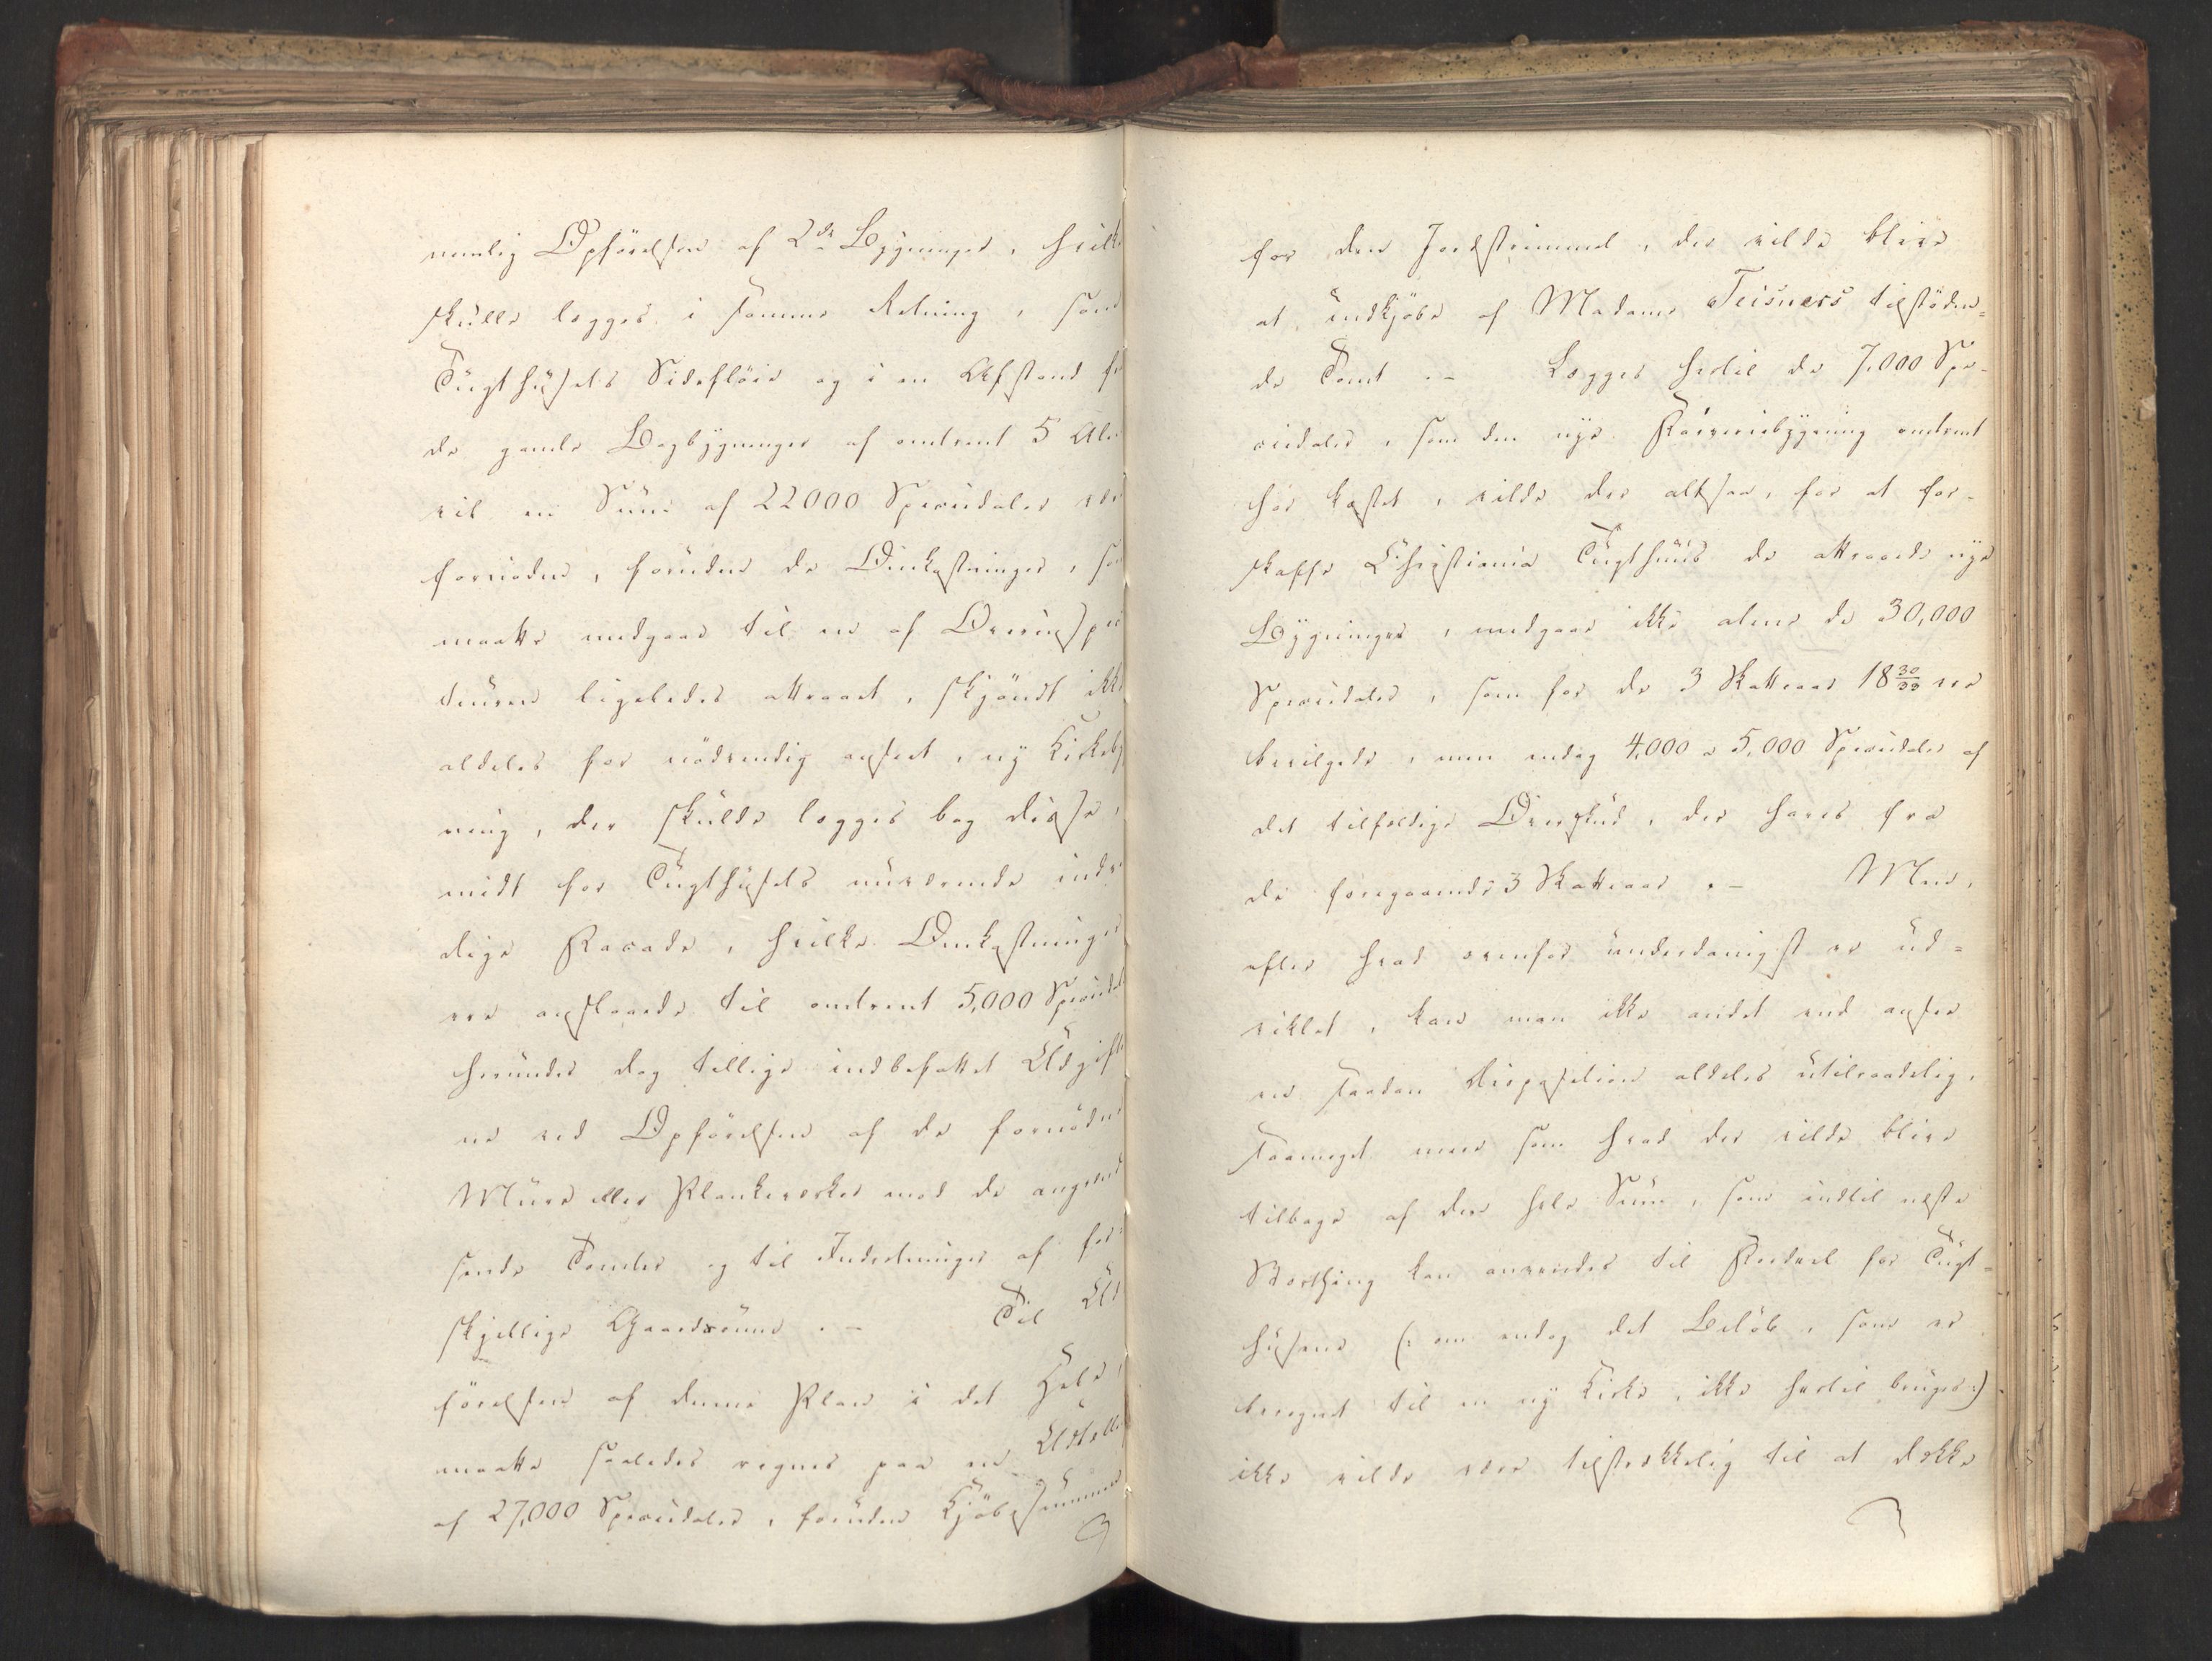 nemlig Opførelsen af 2de Bygninger, hvilke
skulle lægges i samme Retning, som
Tugthusets Sidefløie og i en Afstand fra
de gamle Bagbygninger af omtrent 5 Alen
vil en Sum af 22000 Speciedaler være
fornøden, foruden de Omkostninger, som
maatte medgaae til en af Overinspec
teuren ligeledes attraaet, skjøndt ikke
aldeles for nødvendig anseet, ny Kirkebyg
ning, der skulde lægges bag disse,
midt for Tugthusets nuværende indven
dige Facade, hvilke Omkostninger
ere anslaaede til omtrent 5,000 Speciedaler
herunder dog tillige indbefattet Udgifter
ne ved Opførelsen af de fornødne
Mure eller Plankeværker mod de angrænd
sende Tomter og til Indretninger af for
skjellige Gaardsrum .- Til Ud
førelsen af denne Plan i det Hele,
maatte saaledes regnes paa en Udtælling
af 27,000 Speciedaler, foruden Kjøbesummen
for den Jordstrimmel, der vilde blive
at indkjøbe af Madame Teisners tilstøden=
de Tomt .- Lægges hertil de 7,000 Spe-
ciedaler, som den nye Farveribygning omtrent
har kostet, vilde der altsaa, for at for-
skaffe Christiania Tugthuus de attraaede nye
Bygninger, medgaae ikke alene de 30,000
Speciedaler, som for de 3 Skatteaar 18 30/33 ere
bevilgede, men endog 4,000 a 5,000 Speciedaler af
det tilfældige Overskud, der haves fra
de foregaaende 3 Skatteaar .- Men,
efter hvad ovenfor underdanigst er ud=
viklet, kan man ikke andet end ansee
en saadan Disposition aldeles utilraadelig,
saameget mere som hvad der vilde blive
tilbage af den hele Sum, som indtil næste
Storthing kan anvendes til Fordeel for Tugt=
husene (: om endog det Beløb, som er
beregnet til en ny Kirke, ikke hertil bruges:)
ikke vilde være tilstrækkelig til at dække